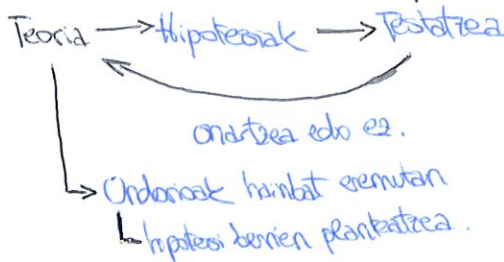 Teoria → Hipotesiak → Testatzea
onartzea edo ez.
Ondorioak hainbat eremutan
hipotesi berrien planteatzea.